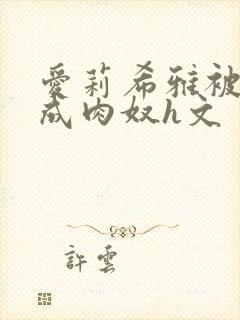 愛莉希雅被
成肉奴h文
許雲